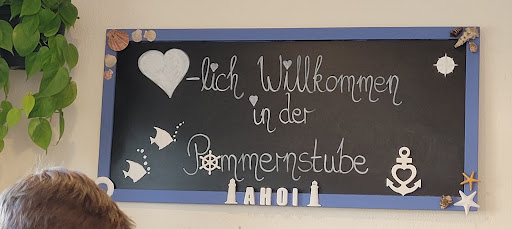 -lich Willkommen
in der
Pommernstube
AHOI